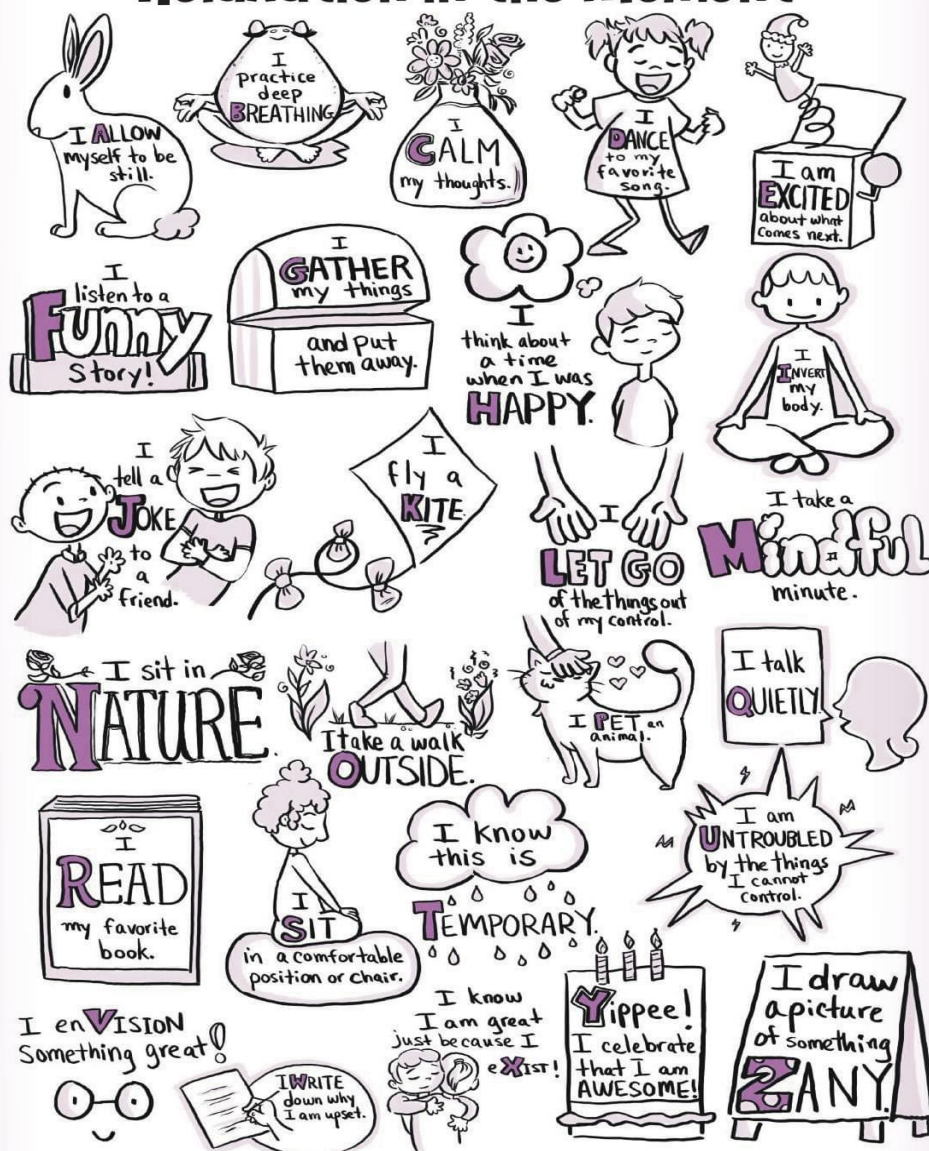 in the Moment
I ALLOW
myself to be
still.
I
practice
deep
BREATHING
I
CALM
my thoughts.
I
DANCE
to my
favorite
song.
I am
EXCITED
about what
comes next.
I
listen to a
Funny
Story!
I
GATHER
my things
and put
them away.
I
think about
a time
when I was
HAPPY.
I
INVERT
my
body.
I
tell a
JOKE
to
a
friend.
I
fly a
KITE
I
LET GO
of the things out
of my control.
I take a
Mindful
minute.
I sit in
NATURE.
I take a walk
OUTSIDE.
I PET an
animal.
I talk
QUIETLY.
I
READ
my favorite
book.
I
SIT
in a comfortable
position or chair.
I know
this is
TEMPORARY.
I am
UNTROUBLED
by the things
I cannot
control.
I enVISION
Something great!
I WRITE
down why
I am upset.
I know
I am great
just because I
eXIST!
Yippee!
I celebrate
that I am
AWESOME!
I draw
a picture
of something
ZANY.